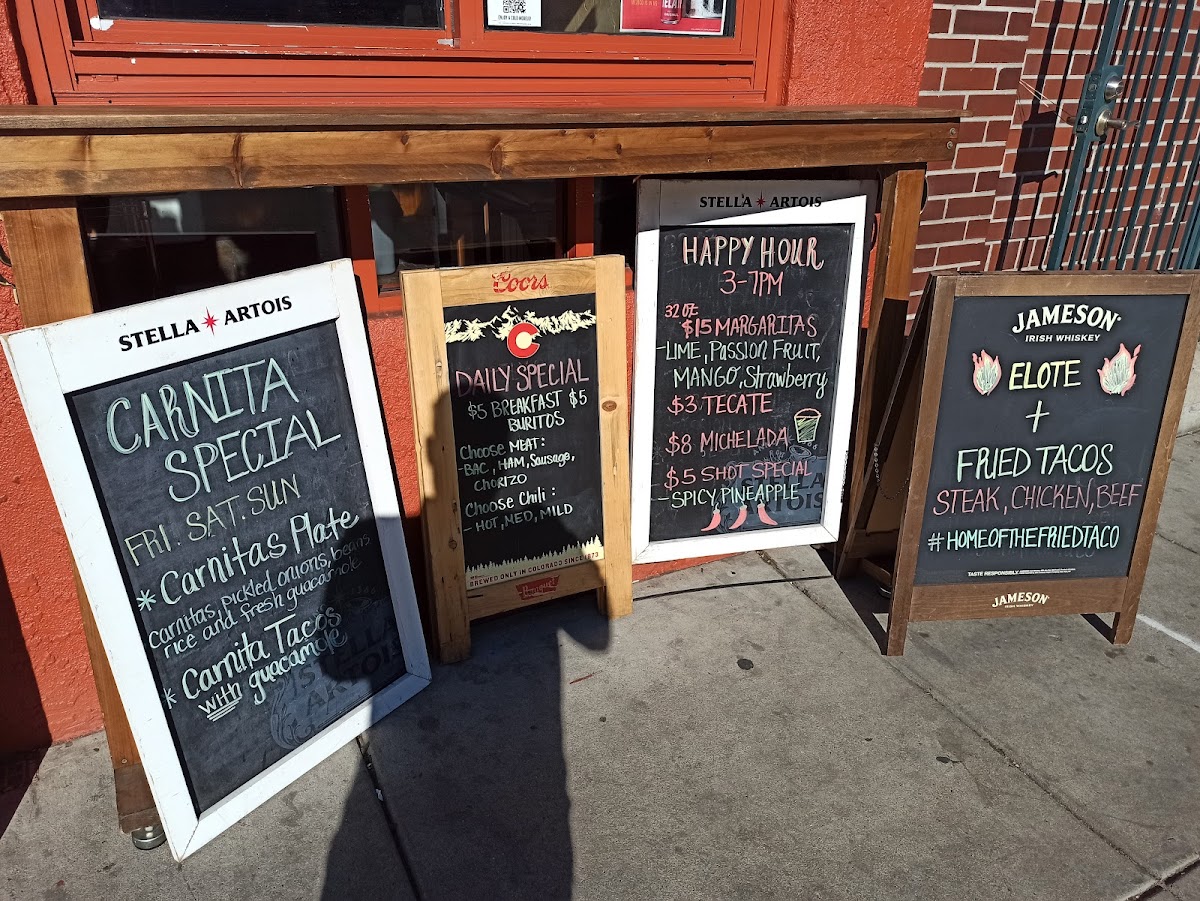 STELLA ARTOIS
CARNITA
SPECIAL
FRI. SAT. SUN
* Carnitas Plate
carnitas, pickled onions, beans
rice and fresh guacamole
* Carnita Tacos
with guacamole
STELLA
ARTOIS
Coors
C
DAILY SPECIAL
$5 BREAKFAST $5
BURITOS
Choose MEAT:
-BAC, HAM, Sausage,
CHORIZO
Choose Chili:
- HOT, MED, MILD
BREWED ONLY IN COLORADO SINCE 1873
STELLA ARTOIS
HAPPY HOUR
3-7PM
32 OZ
$15 MARGARITAS
-LIME, PASSION FRUIT,
MANGO, Strawberry
$3 TECATE
$8 MICHELADA
$5 SHOT SPECIAL
-SPICY, PINEAPPLE
STELLA
ARTOIS
JAMESON
IRISH WHISKEY
ELOTE
+
FRIED TACOS
STEAK, CHICKEN, BEEF
#HOMEOFTHEFRIEDTACO
TASTE RESPONSIBLY.
JAMESON
IRISH WHISKEY